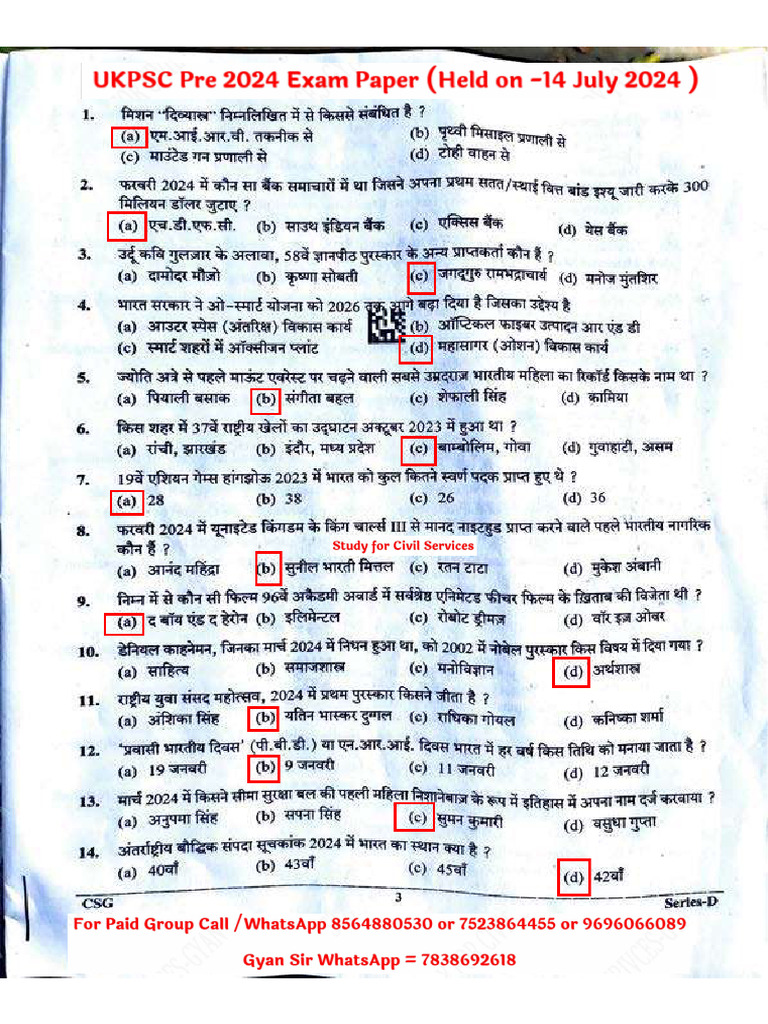 UKPSC Pre 2024 Exam Paper (Held on -14 July 2024 )
1. मिशन "दिव्यास्त्र" निम्नलिखित में से किससे संबंधित है ?
(a) एम.आई.आर.वी. तकनीक से (b) पृथ्वी मिसाइल प्रणाली से
(c) माउंटेड गन प्रणाली से (d) टोही वाहन से
2. फरवरी 2024 में कौन सा बैंक समाचारों में था जिसने अपना प्रथम सतत/स्थाई वित्त बांड इश्यू जारी करके 300
मिलियन डॉलर जुटाए ?
(a) एच.डी.एफ.सी. (b) साउथ इंडियन बैंक (c) एक्सिस बैंक (d) येस बैंक
3. उर्दू कवि गुलज़ार के अलावा, 58वें ज्ञानपीठ पुरस्कार के अन्य प्राप्तकर्ता कौन हैं ?
(a) दामोदर मौज़ो (b) कृष्णा सोबती (c) जगद्गुरु रामभद्राचार्य (d) मनोज मुंतशिर
4. भारत सरकार ने ओ-स्मार्ट योजना को 2026 तक आगे बढ़ा दिया है जिसका उद्देश्य है
(a) आउटर स्पेस (अंतरिक्ष) विकास कार्य (b) ऑप्टिकल फाइबर उत्पादन आर एंड डी
(c) स्मार्ट शहरों में ऑक्सीजन प्लांट (d) महासागर (ओशन) विकास कार्य
5. ज्योति अत्रे से पहले माउंट एवरेस्ट पर चढ़ने वाली सबसे उम्रदराज़ भारतीय महिला का रिकॉर्ड किसके नाम था ?
(a) पियाली बसाक (b) संगीता बहल (c) शेफाली सिंह (d) कामिया
6. किस शहर में 37वें राष्ट्रीय खेलों का उद्घाटन अक्टूबर 2023 में हुआ था ?
(a) रांची, झारखंड (b) इंदौर, मध्य प्रदेश (c) बाम्बोलिम, गोवा (d) गुवाहाटी, असम
7. 19वें एशियन गेम्स हांगझोऊ 2023 में भारत को कुल कितने स्वर्ण पदक प्राप्त हुए थे ?
(a) 28 (b) 38 (c) 26 (d) 36
8. फरवरी 2024 में यूनाइटेड किंगडम के किंग चार्ल्स III से मानद नाइटहुड प्राप्त करने वाले पहले भारतीय नागरिक
कौन हैं ?
Study for Civil Services
(a) आनंद महिंद्रा (b) सुनील भारती मित्तल (c) रतन टाटा (d) मुकेश अंबानी
9. निम्न में से कौन सी फिल्म 96वें अकैडमी अवार्ड में सर्वश्रेष्ठ एनिमेटेड फीचर फिल्म के ख़िताब की विजेता थी ?
(a) द बॉय एंड द हेरोन (b) इलिमेन्टल (c) रोबोट ड्रीमज़ (d) वॉर इज़ ओवर
10. डेनियल काहनेमन, जिनका मार्च 2024 में निधन हुआ था, को 2002 में नोबेल पुरस्कार किस विषय में दिया गया ?
(a) साहित्य (b) समाजशास्त्र (c) मनोविज्ञान (d) अर्थशास्त्र
11. राष्ट्रीय युवा संसद महोत्सव, 2024 में प्रथम पुरस्कार किसने जीता है ?
(a) अंशिका सिंह (b) यतिन भास्कर दुग्गल (c) राधिका गोयल (d) कनिष्का शर्मा
12. 'प्रवासी भारतीय दिवस' (पी.बी.डी.) या एन.आर.आई. दिवस भारत में हर वर्ष किस तिथि को मनाया जाता है ?
(a) 19 जनवरी (b) 9 जनवरी (c) 11 जनवरी (d) 12 जनवरी
13. मार्च 2024 में किसने सीमा सुरक्षा बल की पहली महिला निशानेबाज़ के रूप में इतिहास में अपना नाम दर्ज करवाया ?
(a) अनुपमा सिंह (b) सपना सिंह (c) सुमन कुमारी (d) वसुधा गुप्ता
14. अंतर्राष्ट्रीय बौद्धिक संपदा सूचकांक 2024 में भारत का स्थान क्या है ?
(a) 40वाँ (b) 43वाँ (c) 45वाँ (d) 42वाँ
CSG 3 Series-D
For Paid Group Call /WhatsApp 8564880530 or 7523864455 or 9696066089
Gyan Sir WhatsApp = 7838692618